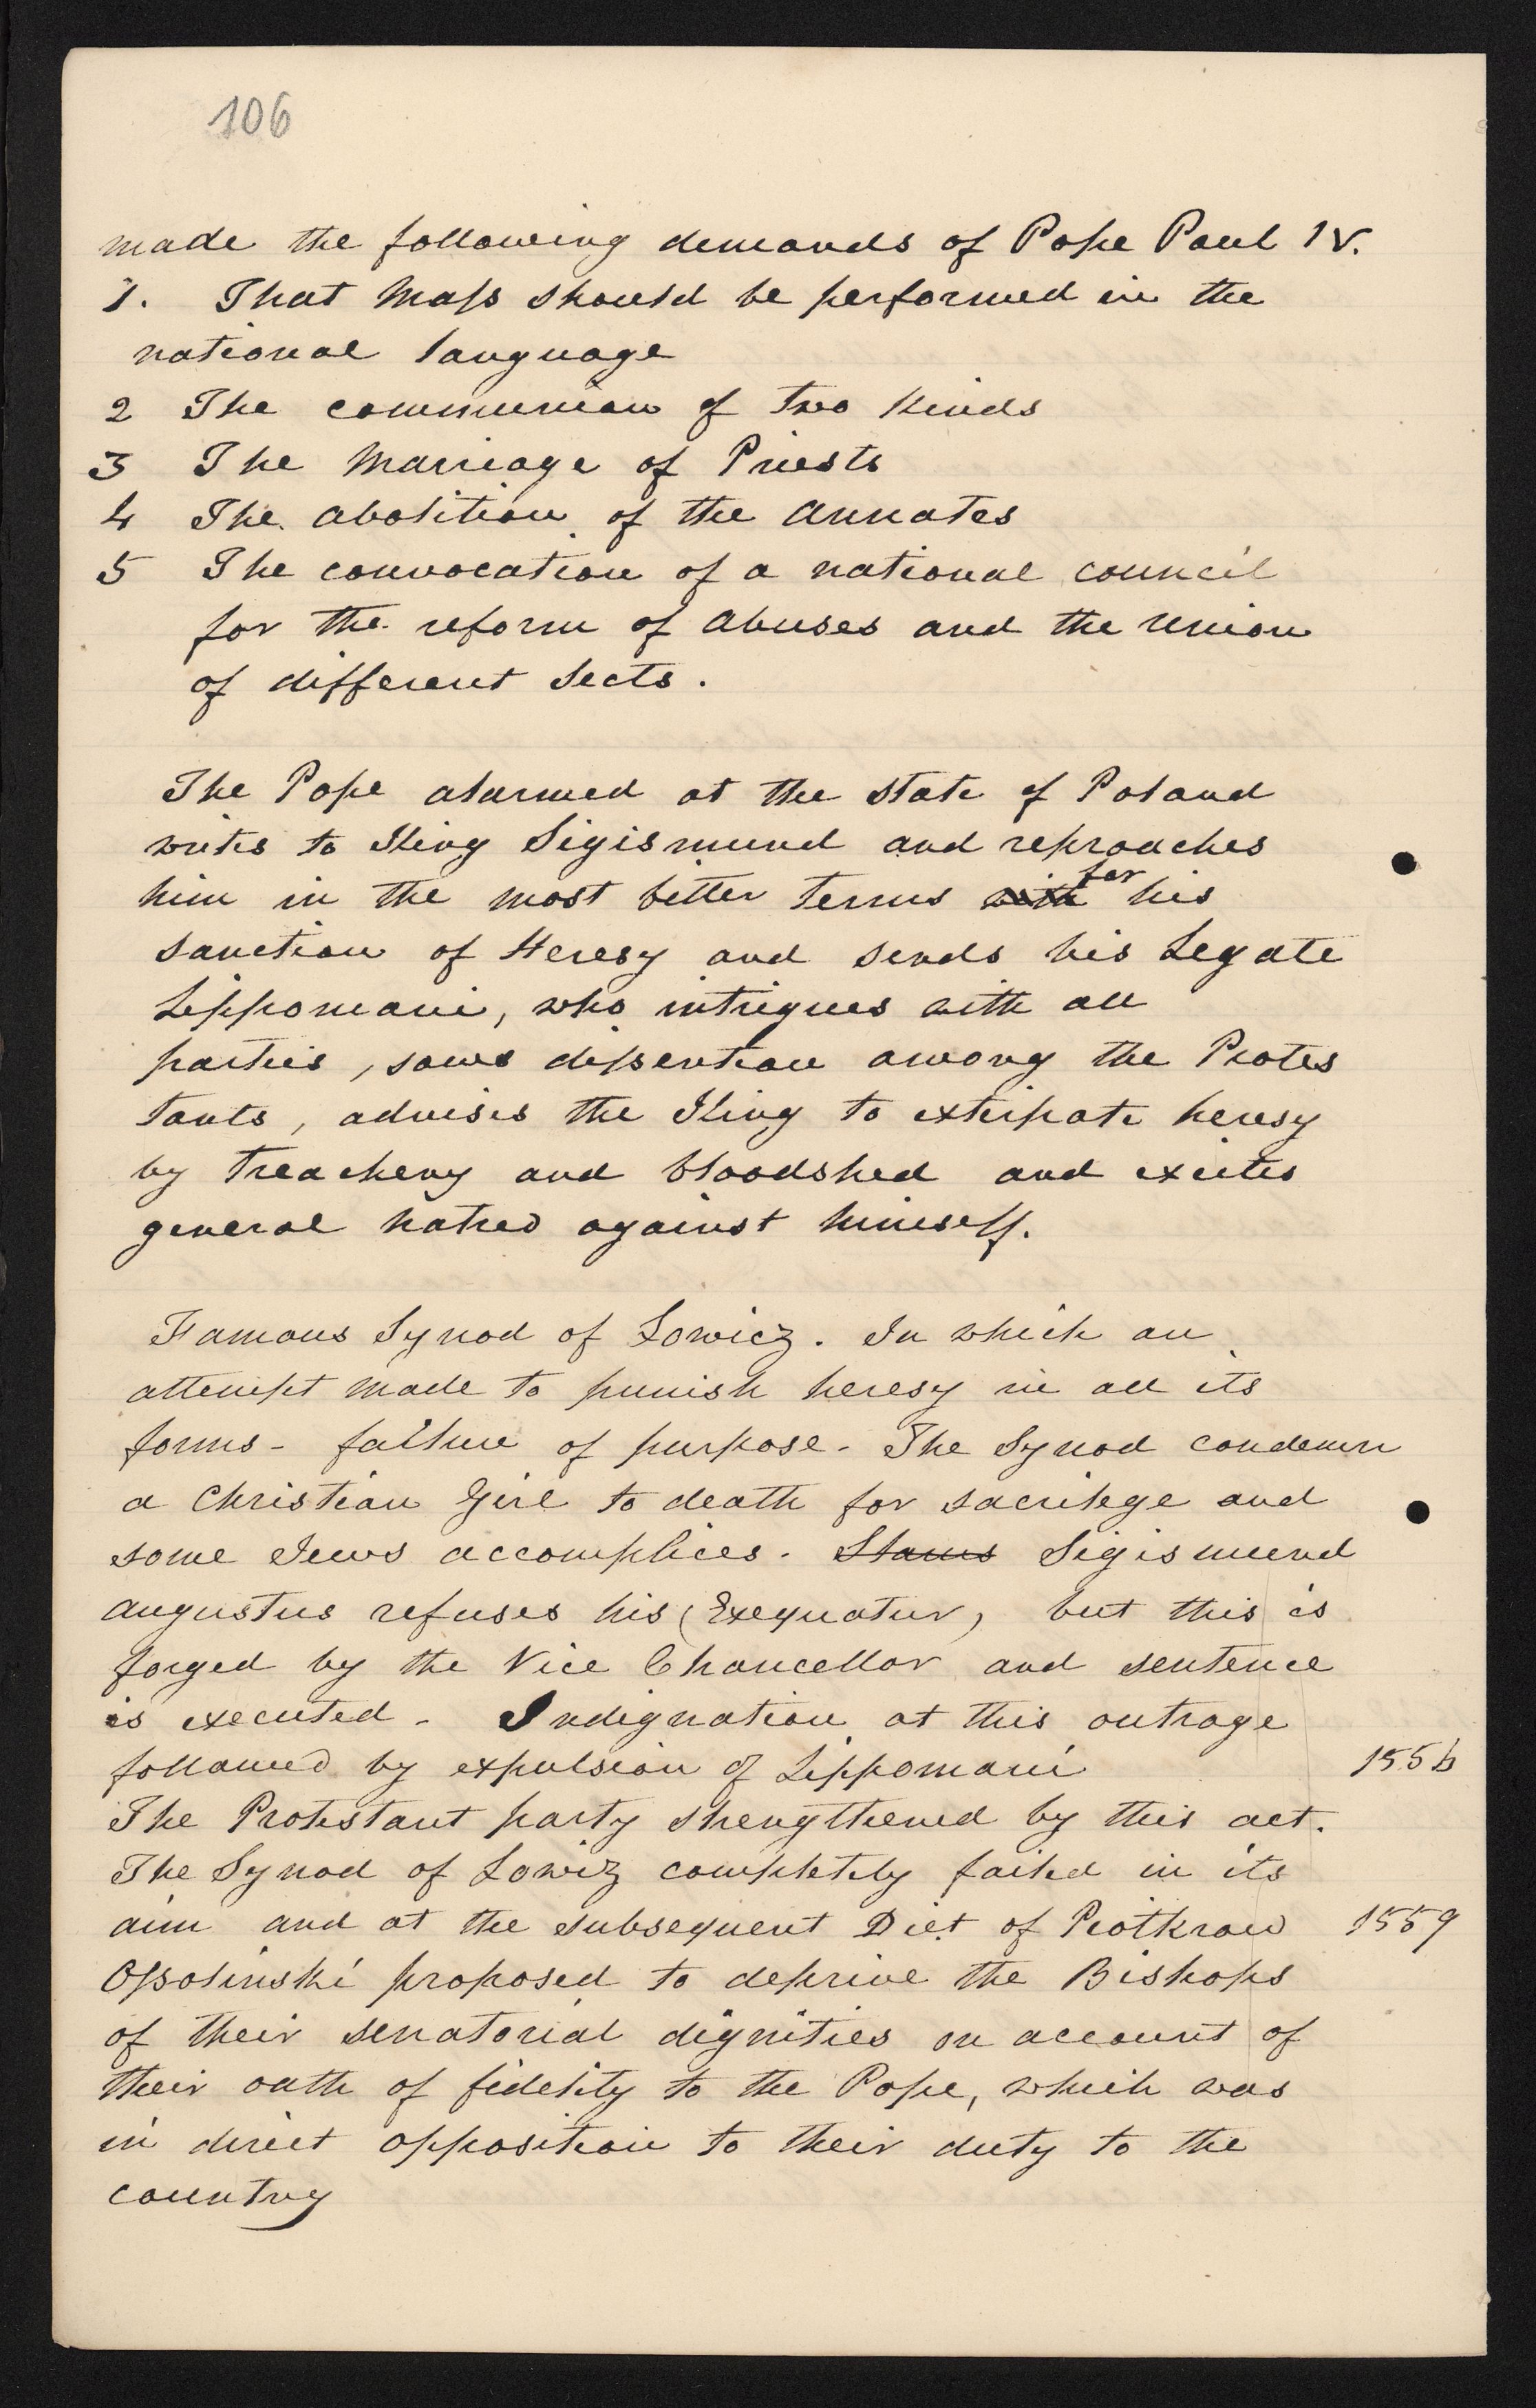 106
made the following demands of Pope Paul IV.
1. That Mass should be performed in the
national language
2 The communion of two Kinds
3 The Marriage of Priests
4 The abolition of the Annates
5 The convocation of a national council
for the reform of abuses and the Union
of different Sects.
The Pope alarmed at the state of Poland
writes to King Sigismund and reproaches
him in the most bitter terms with for his
sanction of Heresy and sends his Legate
Lippomani, who intrigues with all
parties, sows dissention among the Protes
tants, advises the King to exterpate heresy
by treachery and bloodshed and excites
general hatred against himself.
Famous Synod of Lowicz. In which an
attempt made to punish heresy in all its
forms - failure of purpose - The Synod condemn
a Christian Girl to death for sacrilege and
some Jews accomplices. Sigismund
Augustus refuses his (Exequatur) but this is
forged by the Vice Chancellor and sentence
is executed - Indignation at this outrage
followed by expulsion of Lippomani 1556
The Protestant party strengthened by this act.
The Synod of Lowiz completely failed in its
aim and at the subsequent Diet of Piotkrow 1559
Ossolinski proposed to deprive the Bishops
of their senatorial dignities on account of
their oath of fidelity to the Pope, which was
in direct opposition to their duty to the
country